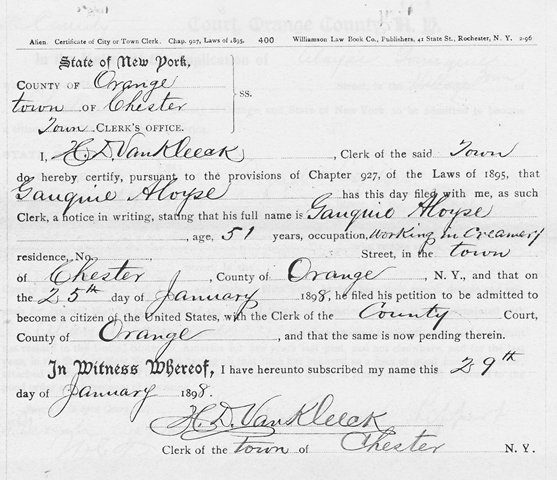 Alien. Certificate of City or Town Clerk. Chap. 927, Laws of 1895. 400 Williamson Law Book Co., Publishers, 41 State St., Rochester, N. Y. 2-96
State of New York,
COUNTY OF Orange
town OF Chester
Town CLERK'S OFFICE.
SS.
I, H. D. VanKleeck, Clerk of the said Town
do hereby certify, pursuant to the provisions of Chapter 927, of the Laws of 1895, that
Gauquie Aloyse has this day filed with me, as such
Clerk, a notice in writing, stating that his full name is Gauquie Aloyse
, age, 51 years, occupation, Working in Creamery
residence, No. Street, in the town
of Chester, County of Orange, N. Y., and that on
the 25th day of January 1898, he filed his petition to be admitted to
become a citizen of the United States, with the Clerk of the County Court,
County of Orange, and that the same is now pending therein.
In Witness Whereof, I have hereunto subscribed my name this 29th
day of January 1898.
H. D. VanKleeck
Clerk of the town of Chester N. Y.